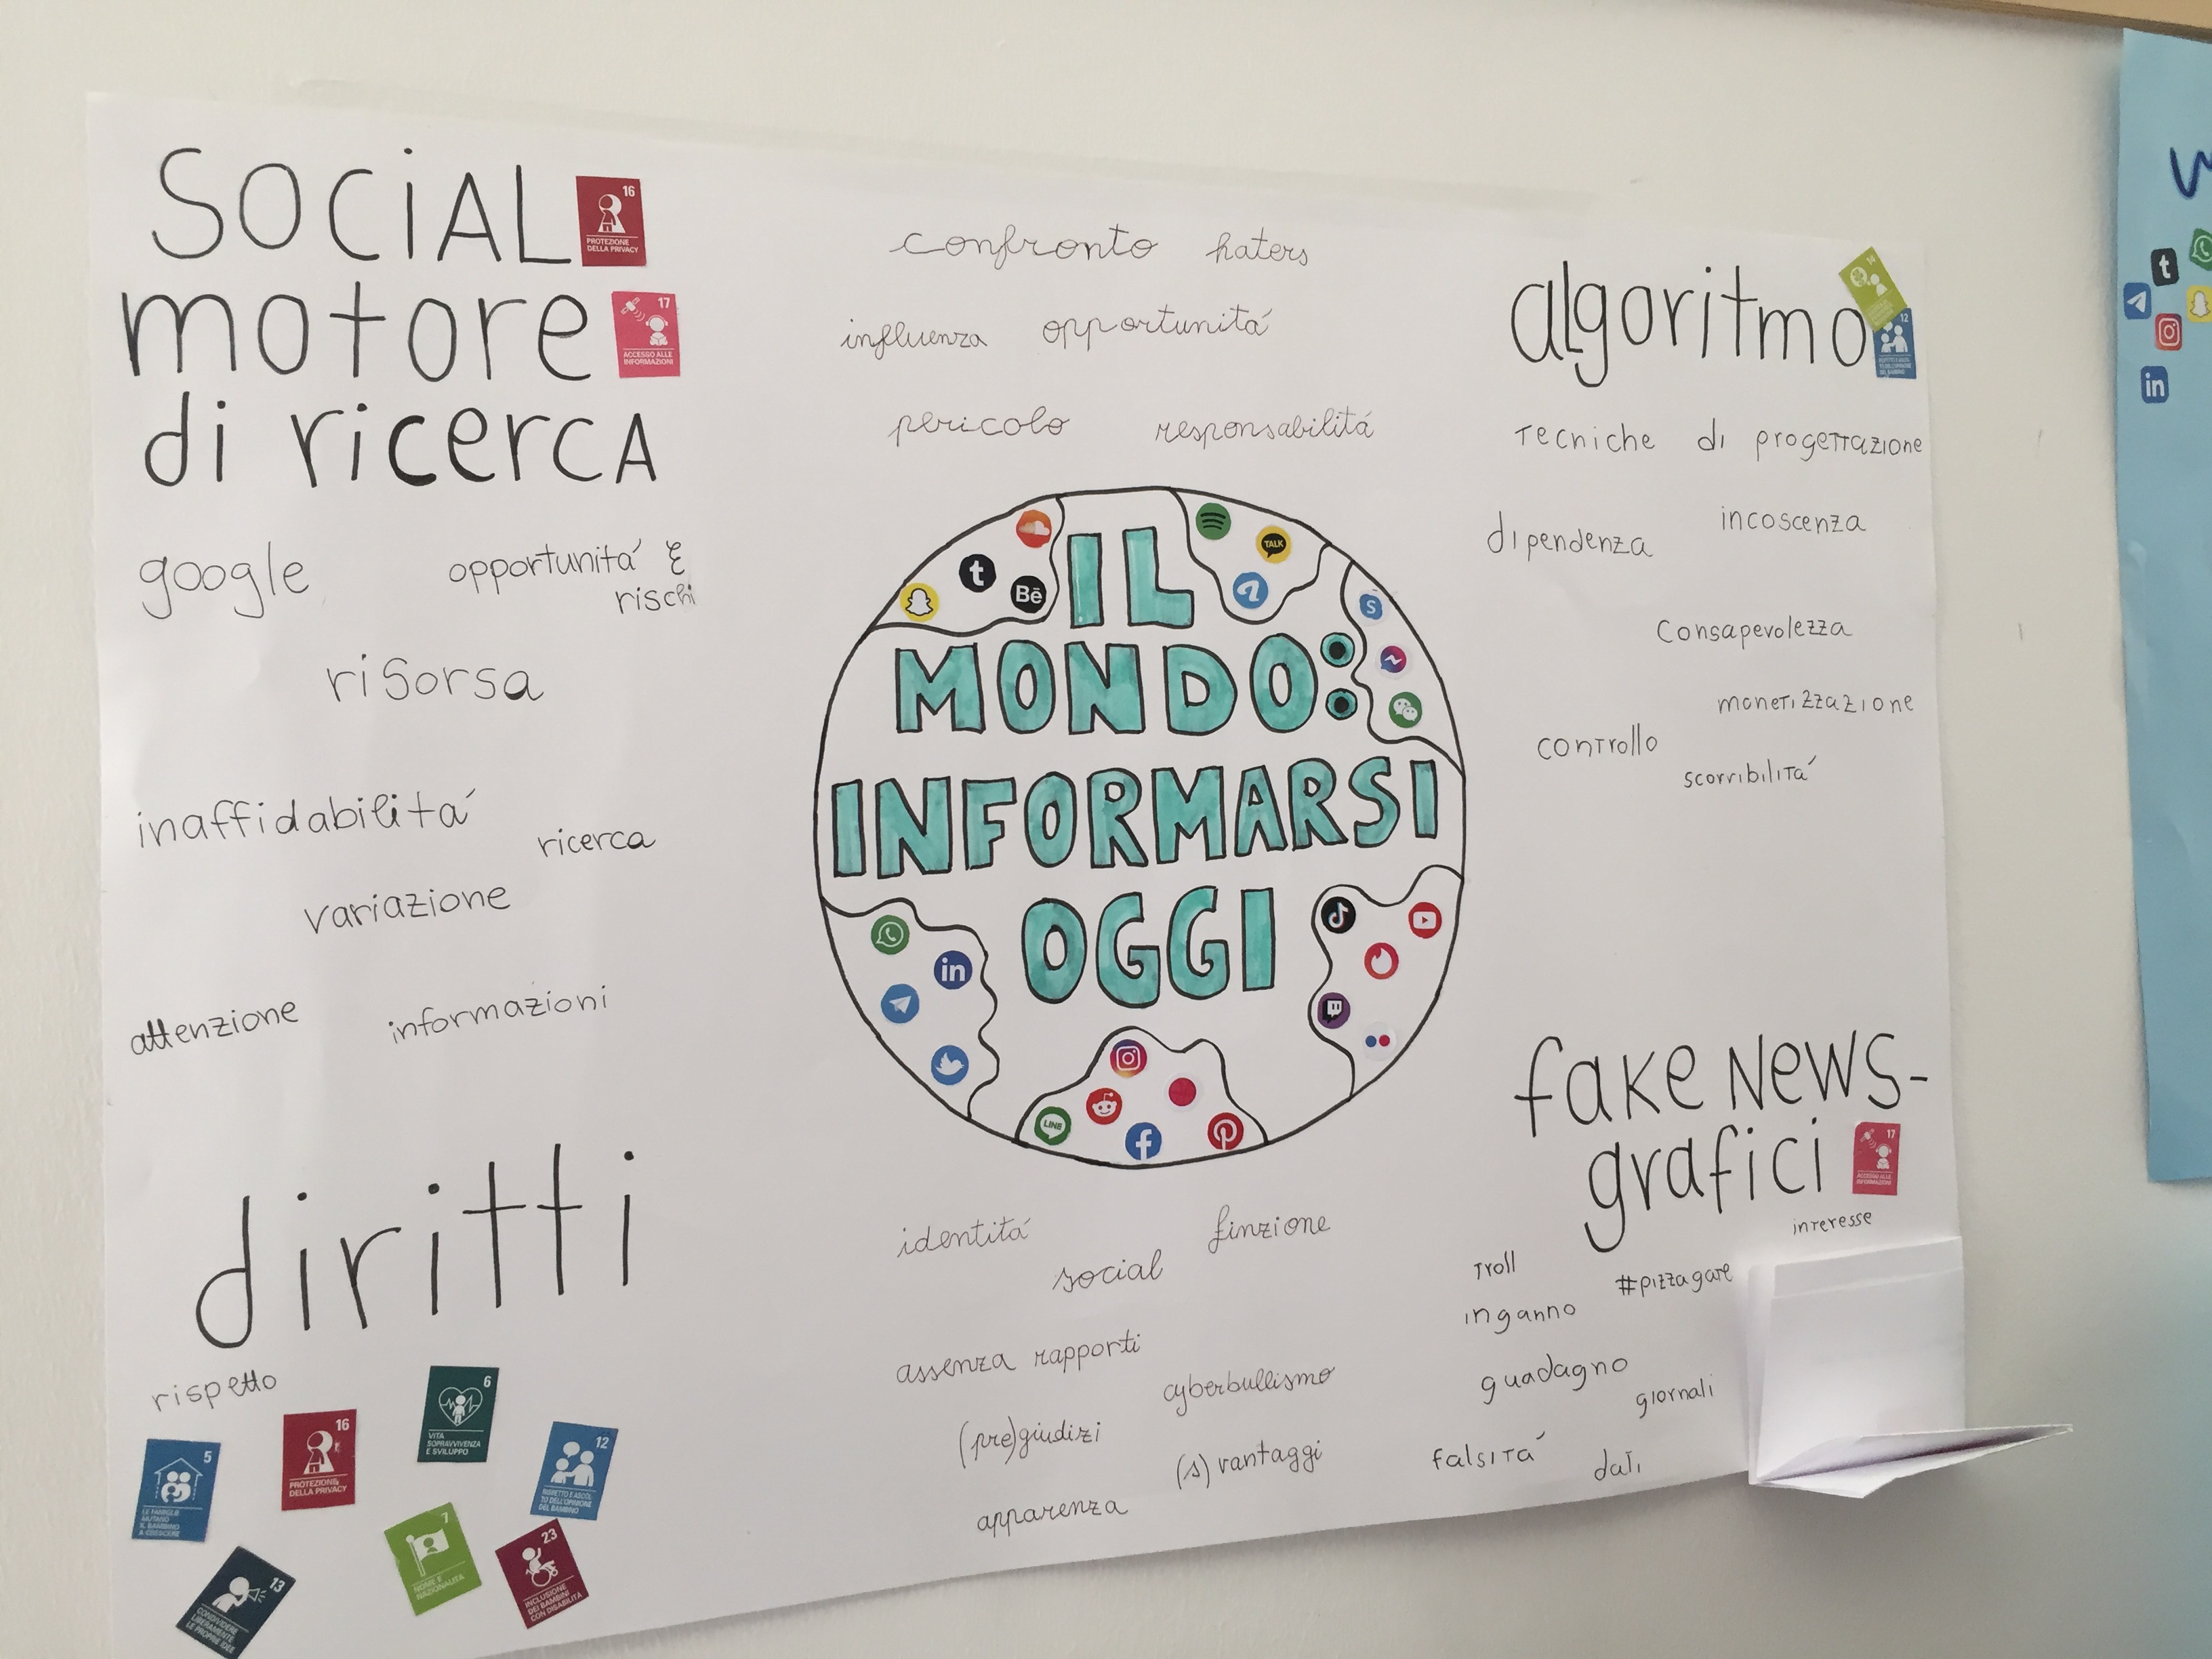 SOCiAL
motore
di ricercA
16
PROTEZIONE
DELLA PRIVACY
17
ACCESSO ALLE
INFORMAZIONI
google
opportunitá E
rischi
risorsa
inaffidabilitá
ricerca
variazione
attenzione
informazioni
diritti
rispetto
5
LE FAMIGLIE
AIUTANO
IL BAMBINO
A CRESCERE
16
PROTEZIONE
DELLA PRIVACY
6
VITA
SOPRAVVIVENZA
E SVILUPPO
12
RISPETTO E ASCOL
TO DELL'OPINIONE
DEL BAMBINO
13
CONDIVIDERE
LIBERAMENTE
LE PROPRIE IDEE
7
NOME E
NAZIONALITÀ
23
INCLUSIONE
DEI BAMBINI
CON DISABILITÀ
confronto haters
influenza opportunitá
pericolo responsabilitá
IL
MONDO:
INFORMARSI
OGGI
t
Bē
TALK
S
in
LINE
f
identitá
finzione
social
assenza rapporti
cyberbullismo
(pre)giudizi
(s)vantaggi
apparenza
algoritmo
12
tecniche di progettazione
dipendenza
incoscenza
Consapevolezza
monetizzazione
controllo
scorribilitá
fake News-
grafici
17
ACCESSO ALLE
INFORMAZIONI
interesse
troll
#pizzagate
inganno
guadagno
giornali
falsitá
dati
t
in